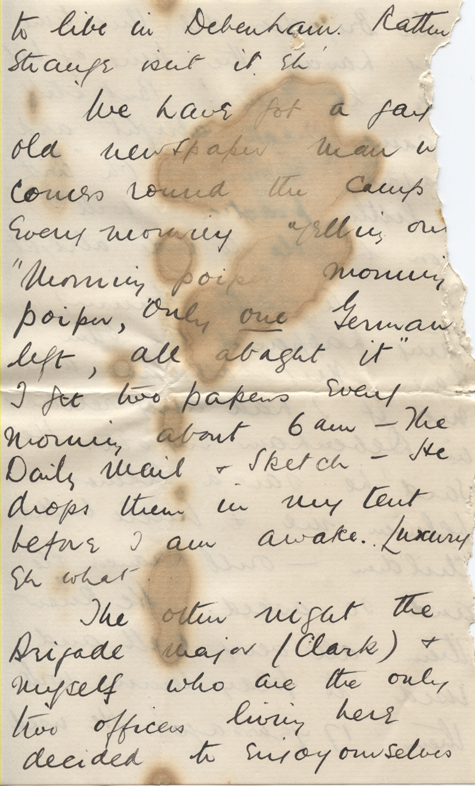 to live in Debenham. Rather
Strange isnt it. Eh'
We have got a gay
old newspaper man w
comes round the camp
Every morning yelling out
"Morning poip morning
poiper, Only one German
left, all abaght it"
I get two papers Every
morning about 6 am – The
Daily Mail & Sketch – He
drops them in my tent
before I am awake. Luxury
Eh what.
The other night the
Brigade Major (Clark) &
myself who are the only
two officers living here
decided to Enjoy ourselves